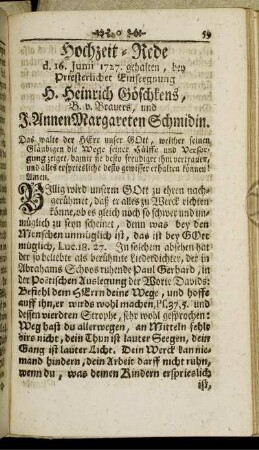 59
Hochzeit-Rede
d. 16. Junii 1727. gehalten, bey
Priesterlicher Einseegnung
H. Heinrich Göschkens,
B. v. Brauers, und
J. Annen Margareten Schmidin.
Das walte der HErr unser GOtt, welcher seinen
Gläubigen die Wege seiner Hülffe und Versor-
gung zeiget, damit sie desto freudiger ihm vertrauen,
und alles ersprießliche desto gewisser erhalten können!
Amen.
Billig wird unserm GOtt zu ehren nach-
gerühmet, daß er alles zu Werck richten
könne, ob es gleich noch so schwer und un-
müglich zu seyn scheinet, denn was bey den
Menschen unmüglich ist, das ist bey GOtt
müglich, Luc. 18. 27. In solchem absehen hat
der so beliebte als berühmte Liederdichter, der in
Abrahams Schoos ruhende Paul Gerhard, in
der Poetischen Auslegung der Worte Davids:
Befiehl dem HErrn deine Wege, und hoffe
auff ihn, er wirds wohl machen, Ps. 37, 5. und
dessen vierdten Strophe, sehr wohl gesprochen:
Weg hast du allerwegen, an Mitteln fehlt
dirs nicht, dein Thun ist lauter Seegen, dein
Gang ist lauter Licht. Dein Werck kan nie-
mand hindern, dein Arbeit darff nicht ruhn,
wenn du, was deinen Kindern ersprießlich
ist,